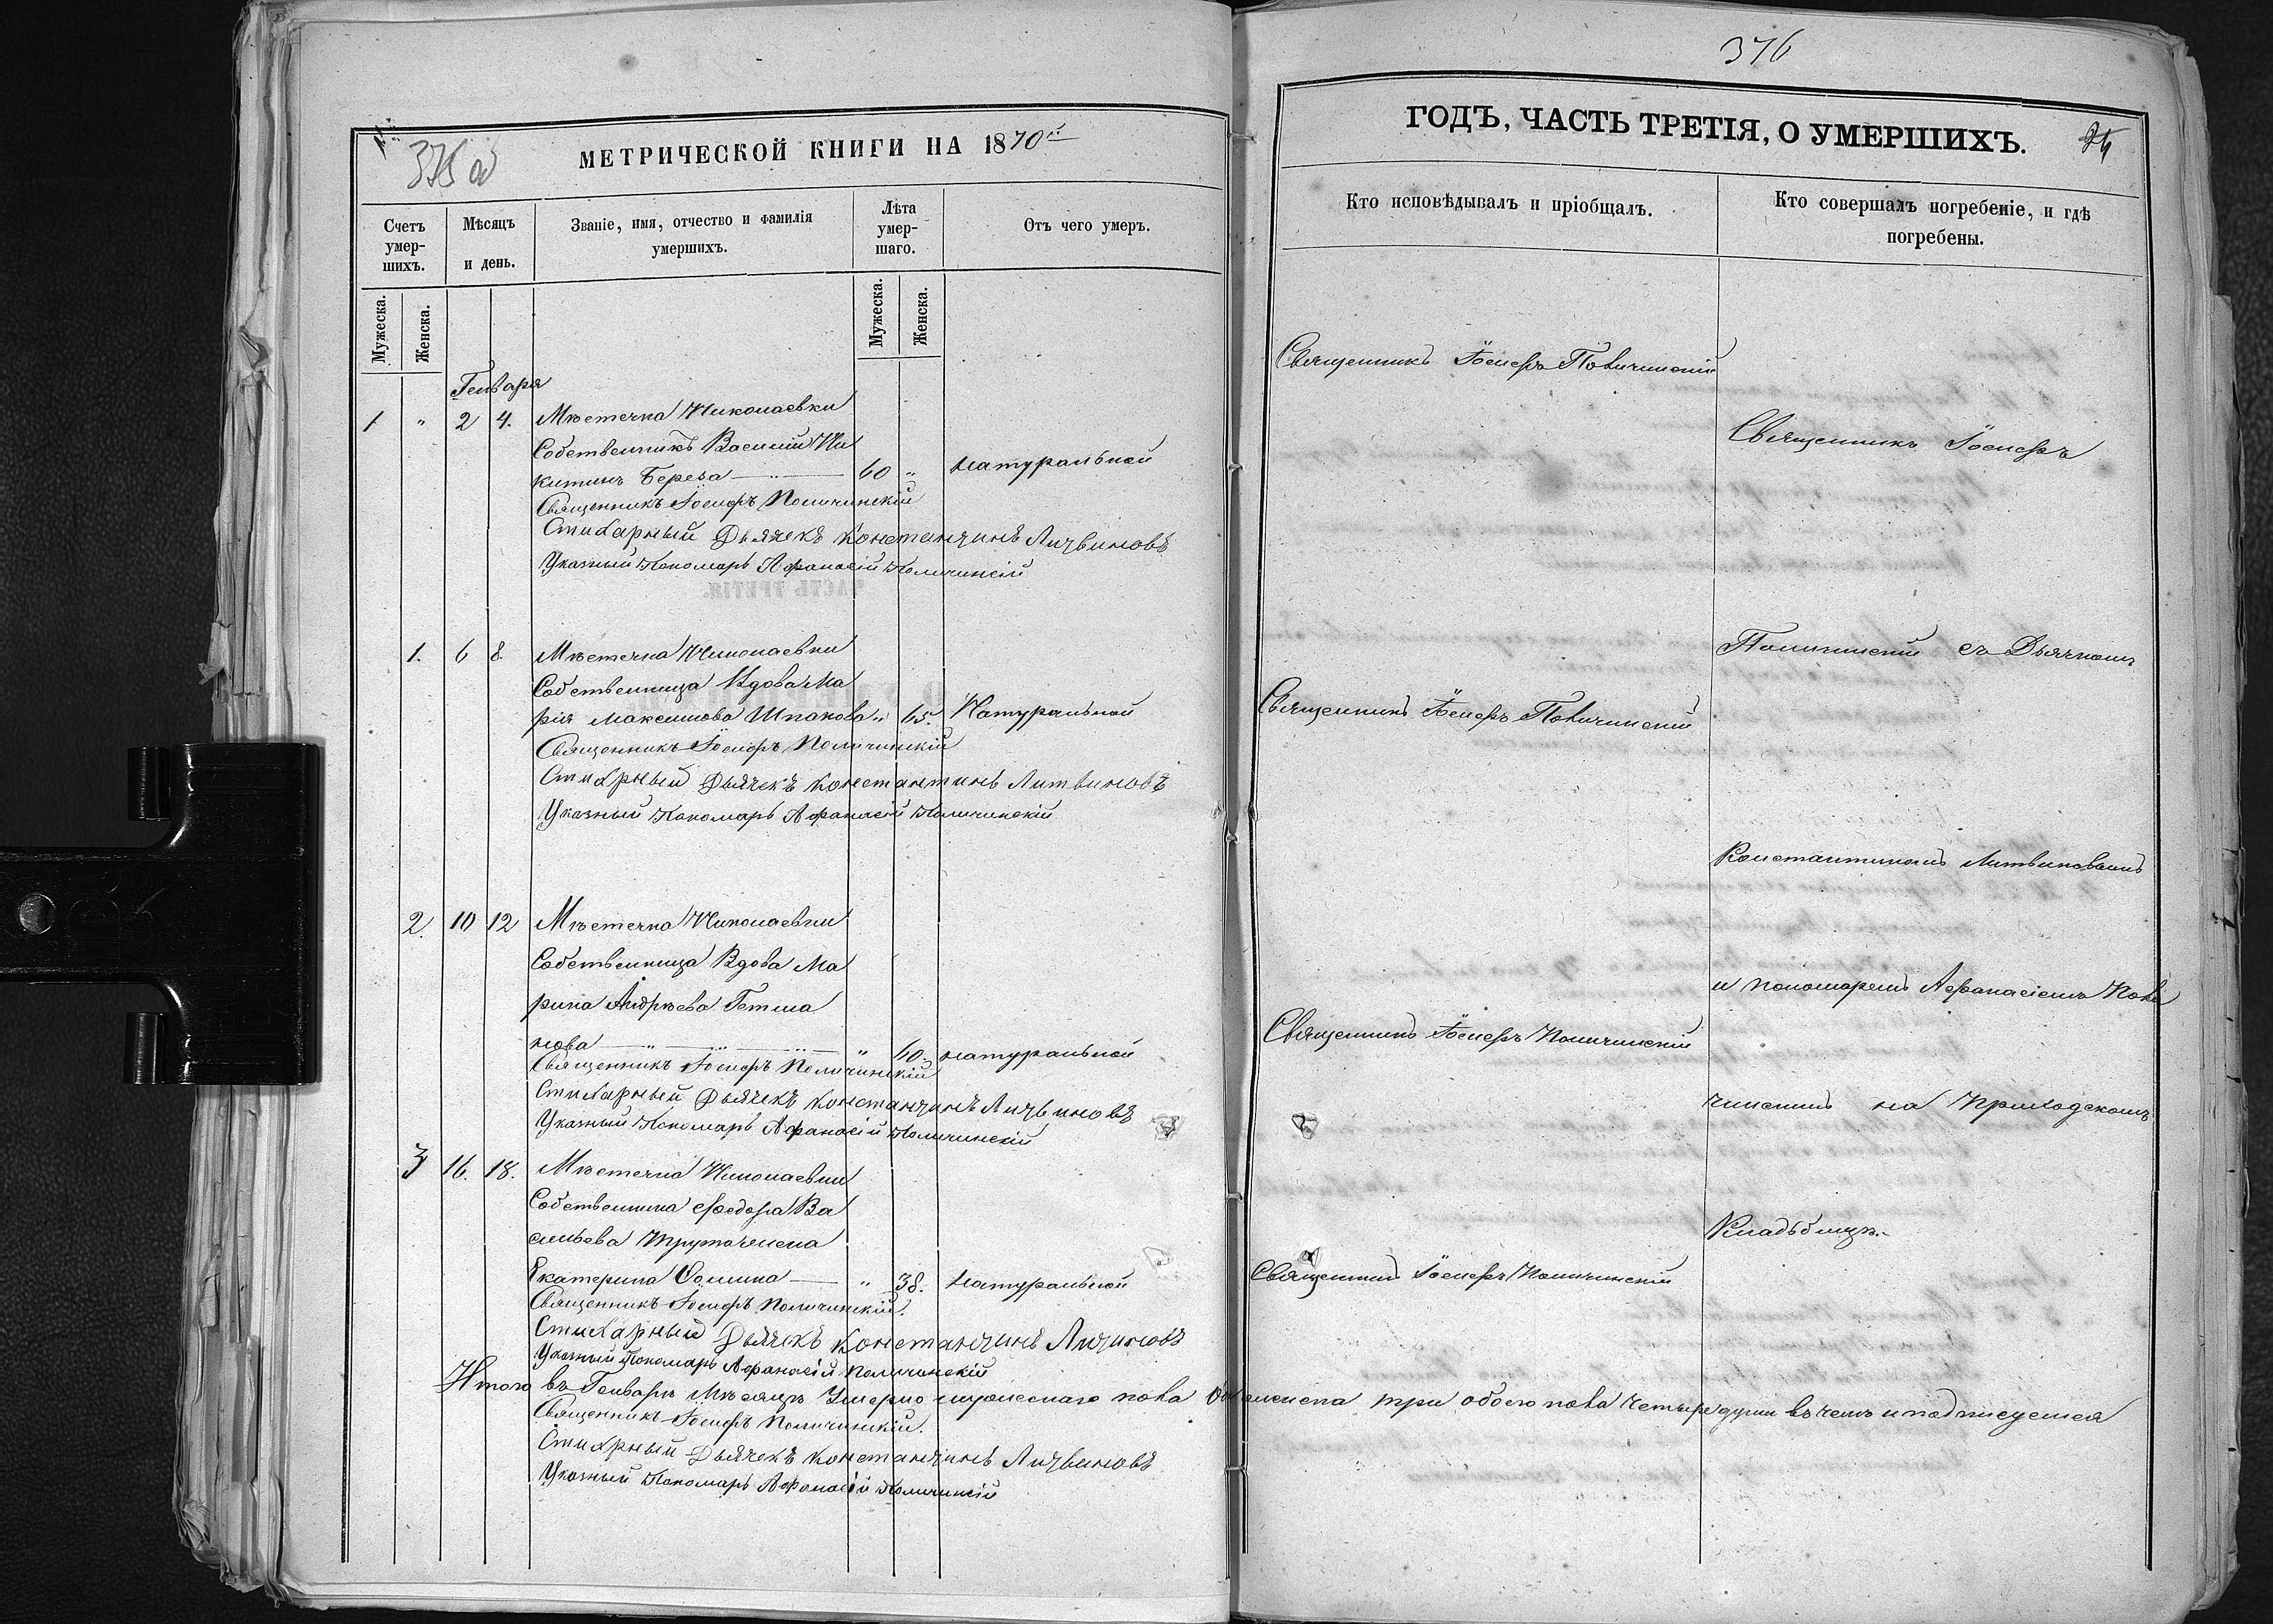 375 об
МЕТРИЧЕСКОЙ КНИГИ НА 1870й
Счетъ умер-шихъ.
Мѣсяцъ и день.
Званіе, имя, отчество и фамилія умершихъ.
Лѣта умер-шаго.
Отъ чего умеръ.
Мужеска.
Женска.
Мужеска.
Женска.
Генваря
1 " 2 4. Мѣстечка Николаевки
Собственникъ Василій Ни
китинъ Береза 60 " натуральной
Священникъ Іосифъ Поличинскій
Стихарный Дьячекъ Константинъ Литвиновъ
Указный Пономарь Афанасій Поличинскій
1. 6 8. Мѣстечка Николаевки
Собственница Вдова Ма
рія Максимова Шпакова " 65. Натуральной
Священникъ Іосифъ Поличинскій
Стихрный Дьячекъ Константинъ Литвиновъ
Указный Пономарь Афанасій Поличинскій
2. 10 12 Мѣстечка Николаевки
Собственница Вдова Ма
рина Андрѣева Гетма
нова " 60. натуральной
Священникъ Іосифъ Поличинскій
Стихарный Дьячекъ Константинъ Литвиновъ
Указный Пономарь Афанасій Поличинскій
3 16. 18. Мѣстечка Николаевки
Собственника Федора Ва
сильева жена
Екатерина Фомина " 38. натуральной
Священникъ Іосифъ Поличинскій.
Стихарный Дьячекъ Константинъ Литиновъ
Указный Пономарь Афанасій Поличинскій
Итого въ Генварѣ Мѣсяцѣ Умерло мужескаго пола женска три обоего пола четыре души въ чемъ и подписуемся
Священникъ Іосифъ Поличинскій.
Стихрный Дьячекъ Константинъ Литвиновъ
Указный Пономарь Афанасій Поличинскій
376
ГОДЪ, ЧАСТЬ ТРЕТІЯ, О УМЕРШИХЪ.
Кто исповѣдывалъ и пріобщалъ.
Кто совершалъ погребеніе, и гдѣ погребены.
Священникъ Іосифъ Поличинскій
Священникъ Іосифъ
Поличинскій съ Дьячкомъ
Священникъ Іосифъ Поличинскій
Константиномъ Литвиновымъ
и пономаремъ Афанасіемъ Поли
Священникъ Іосифъ Поличинскій
чинскимъ на Приходскомъ
Кладбищѣ.
Священникъ Іосифъ Поличинскій